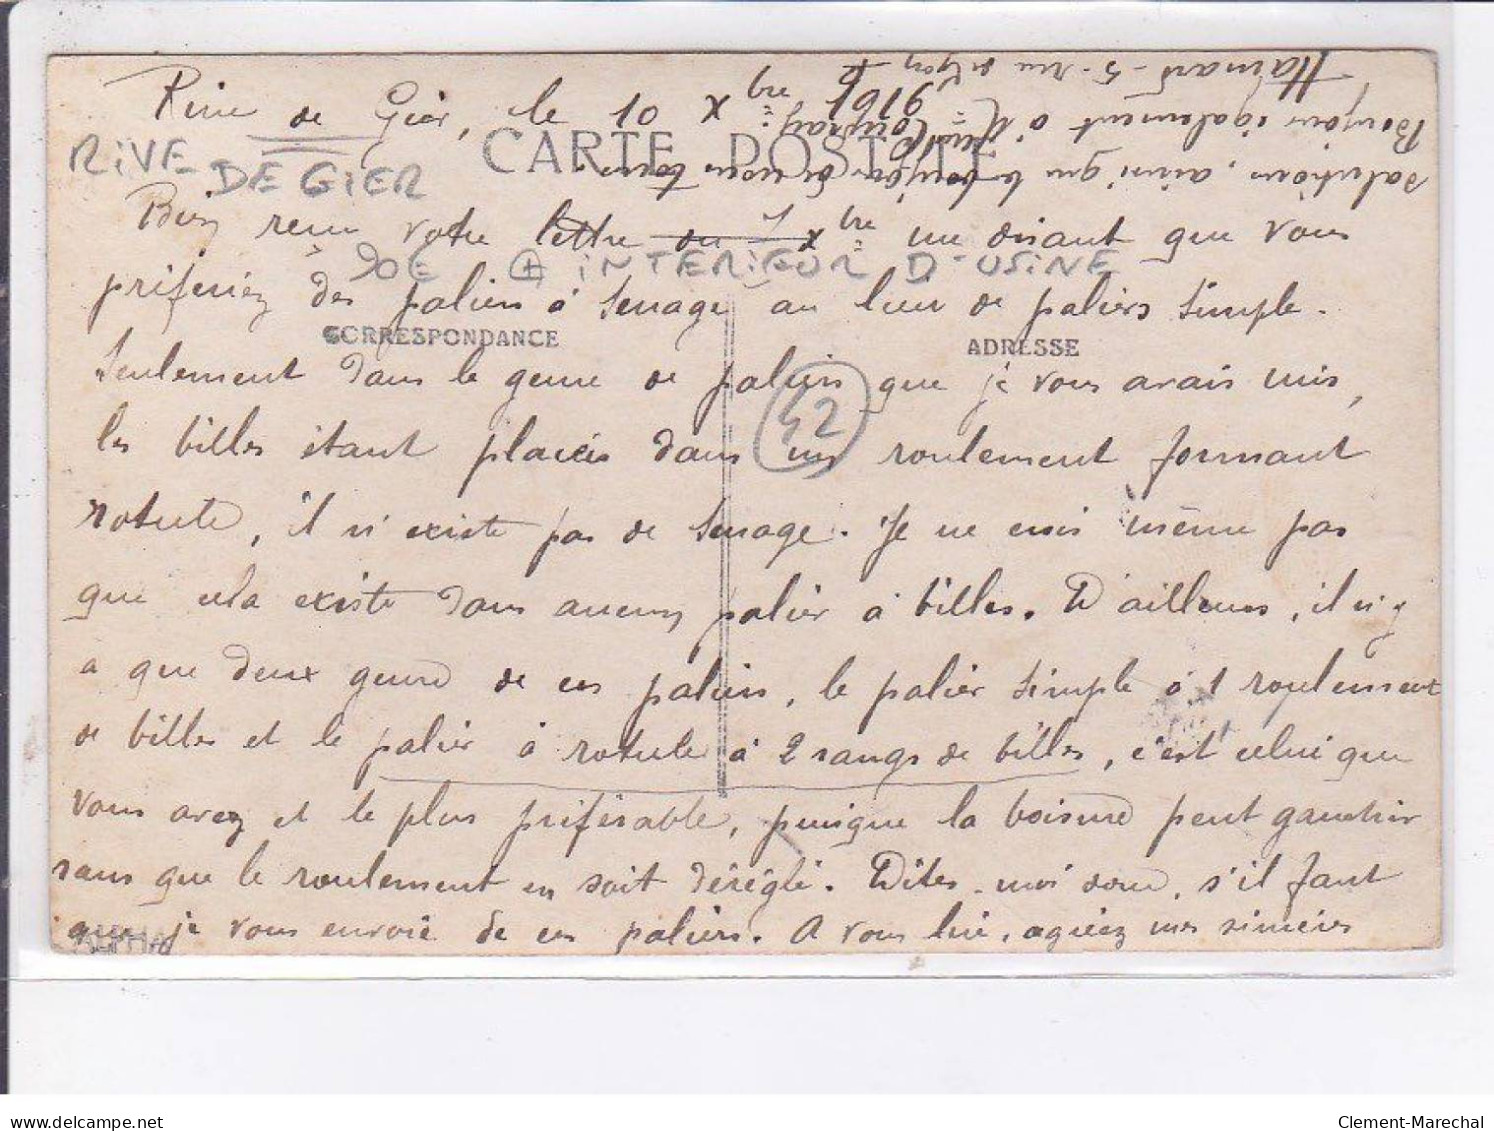 Rive de Gier, le 10 Xbre 1916
CARTE POSTALE
RIVE DE GIER
Bien reçu votre lettre du 7 Xbre me disant que vous
90E + INTERIEUR D'USINE
préfériez des paliers à serrage au lieu de paliers simple.
CORRESPONDANCE
ADRESSE
Seulement dans le genre de paliers que je vous avais mis,
42
les billes étant placées dans un roulement formant
rotule, il n'existe pas de serrage. Je ne crois même pas
que cela existe dans aucun palier à billes. D'ailleurs, il n'y
a que deux genre de ces paliers, le palier simple à 1 roulement
de billes et le palier à rotule à 2 rangs de billes, c'est celui que
vous avez et le plus préférable, puisque la boisure peut gauchir
sans que le roulement en soit déréglé. Dites-moi donc, s'il faut
que je vous envoie de ces paliers. A vous lire, agréez mes sincères
ALPHA
salutations, ainsi que le bonjour de nous tous.
Bonjour également à Mr
Hainard 5 rue de Lyon
Clement-Marechal
www.delcampe.net